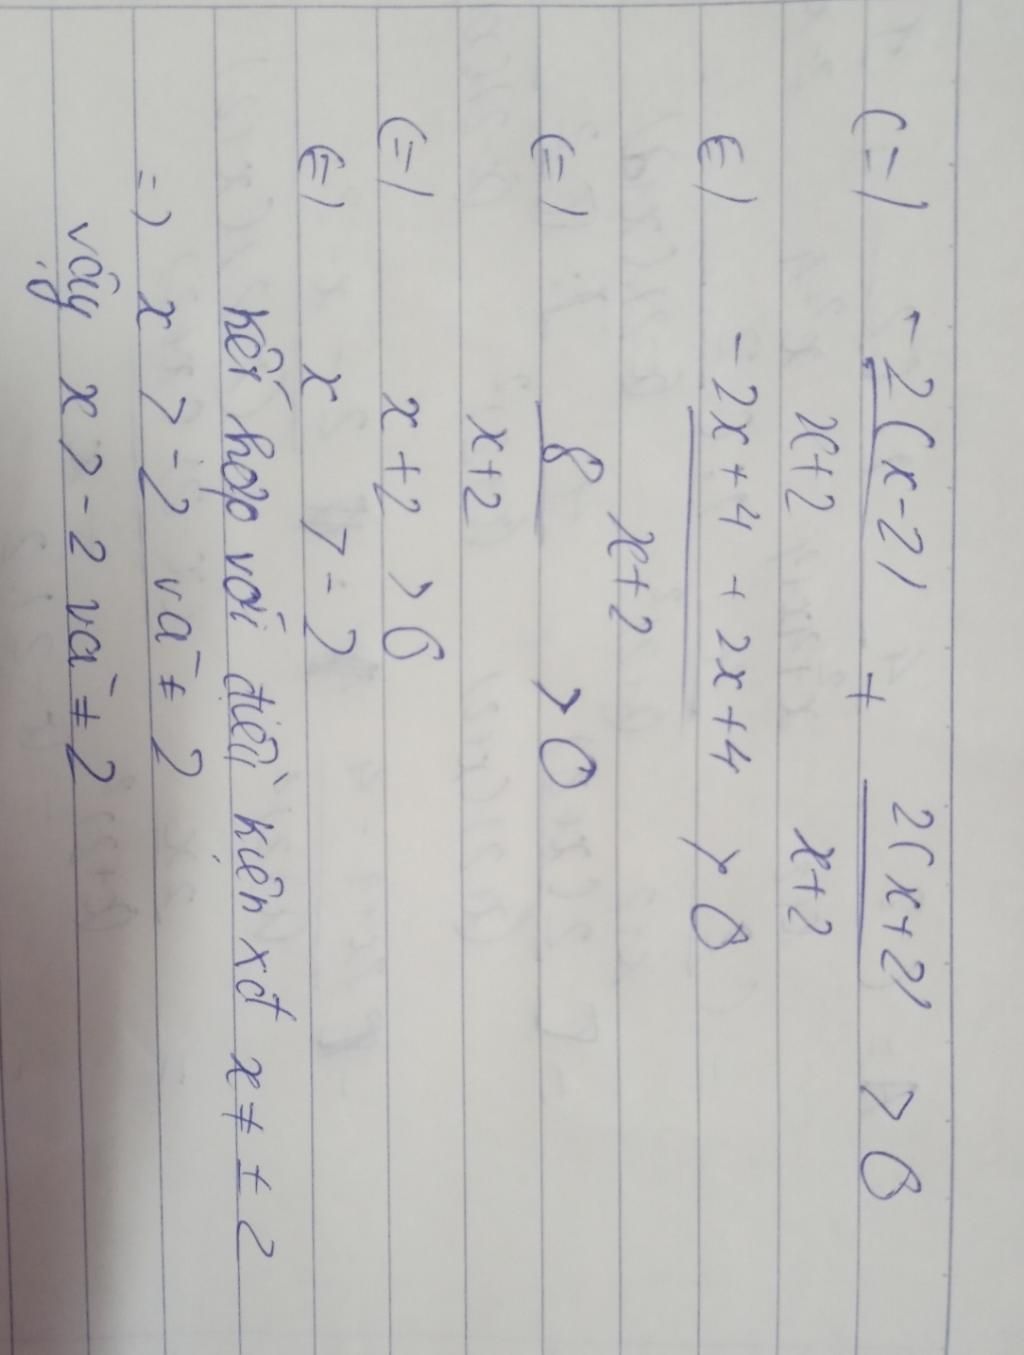 (=) -2(x-2) / x+2 + 2(x+2) / x+2 > 0
(=) -2x+4 + 2x+4 / x+2 > 0
(=) 8 / x+2 > 0
(=) x+2 > 0
(=) x > -2
kết hợp với điều kiện xđ x ≠ ± 2
=) x > -2 và ≠ 2
vậy x > -2 và ≠ 2